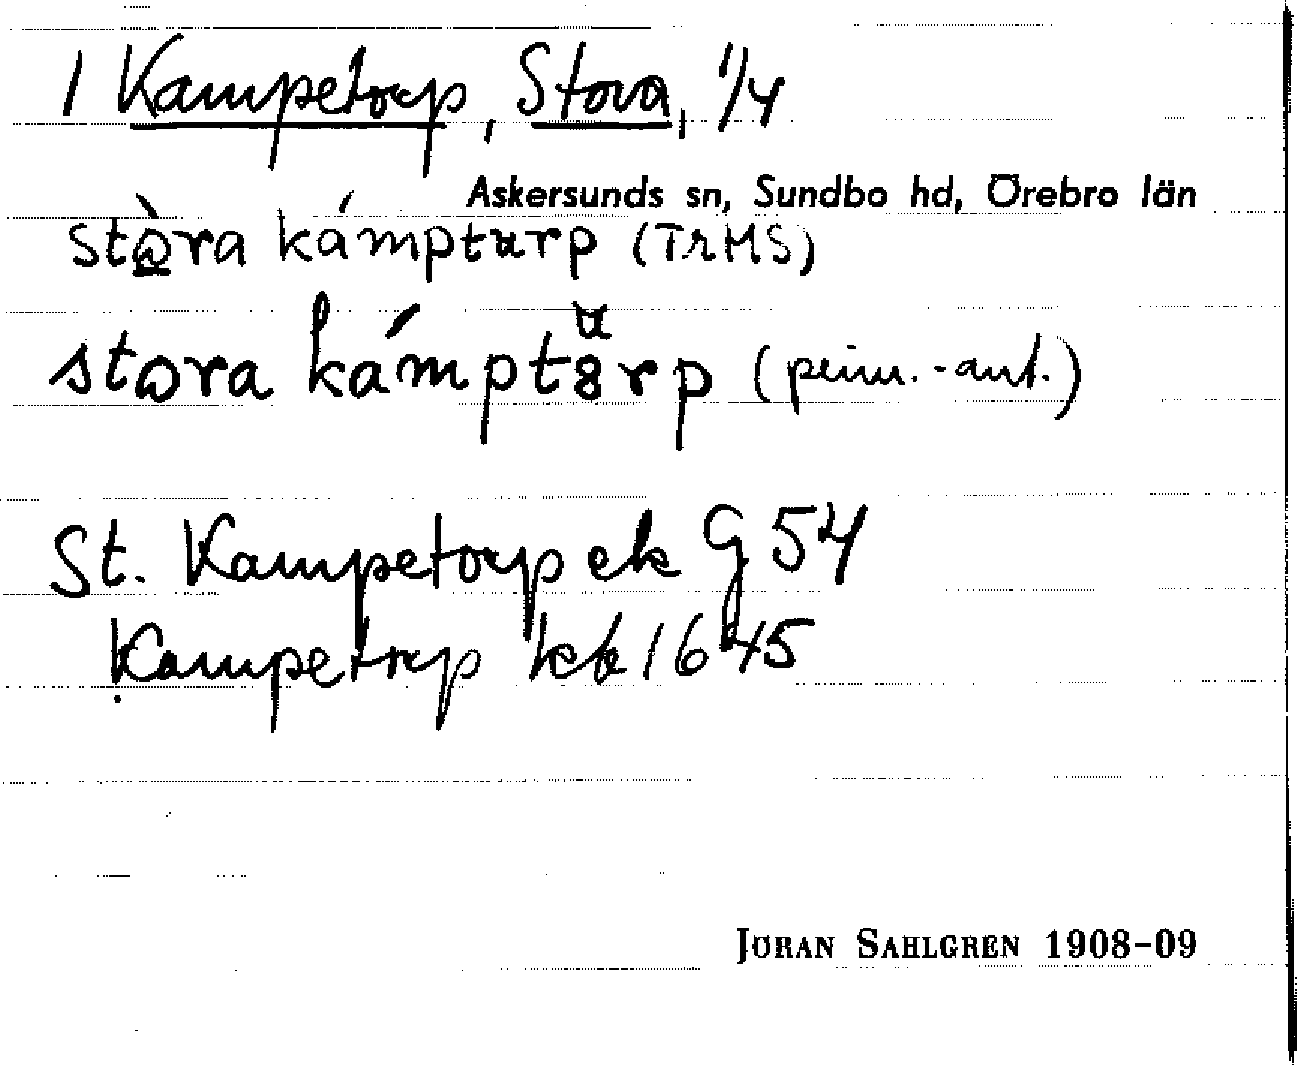 1 Kampetorp, Stora, 1/4
Askersunds sn, Sundbo hd, Örebro län
stòra kámpturp (TrMS)
stora kámptörp (prim.-ant.)
St. Kampetorp ek G 54
Kampetrp kb 1645
JÖRAN SAHLGREN 1908-09